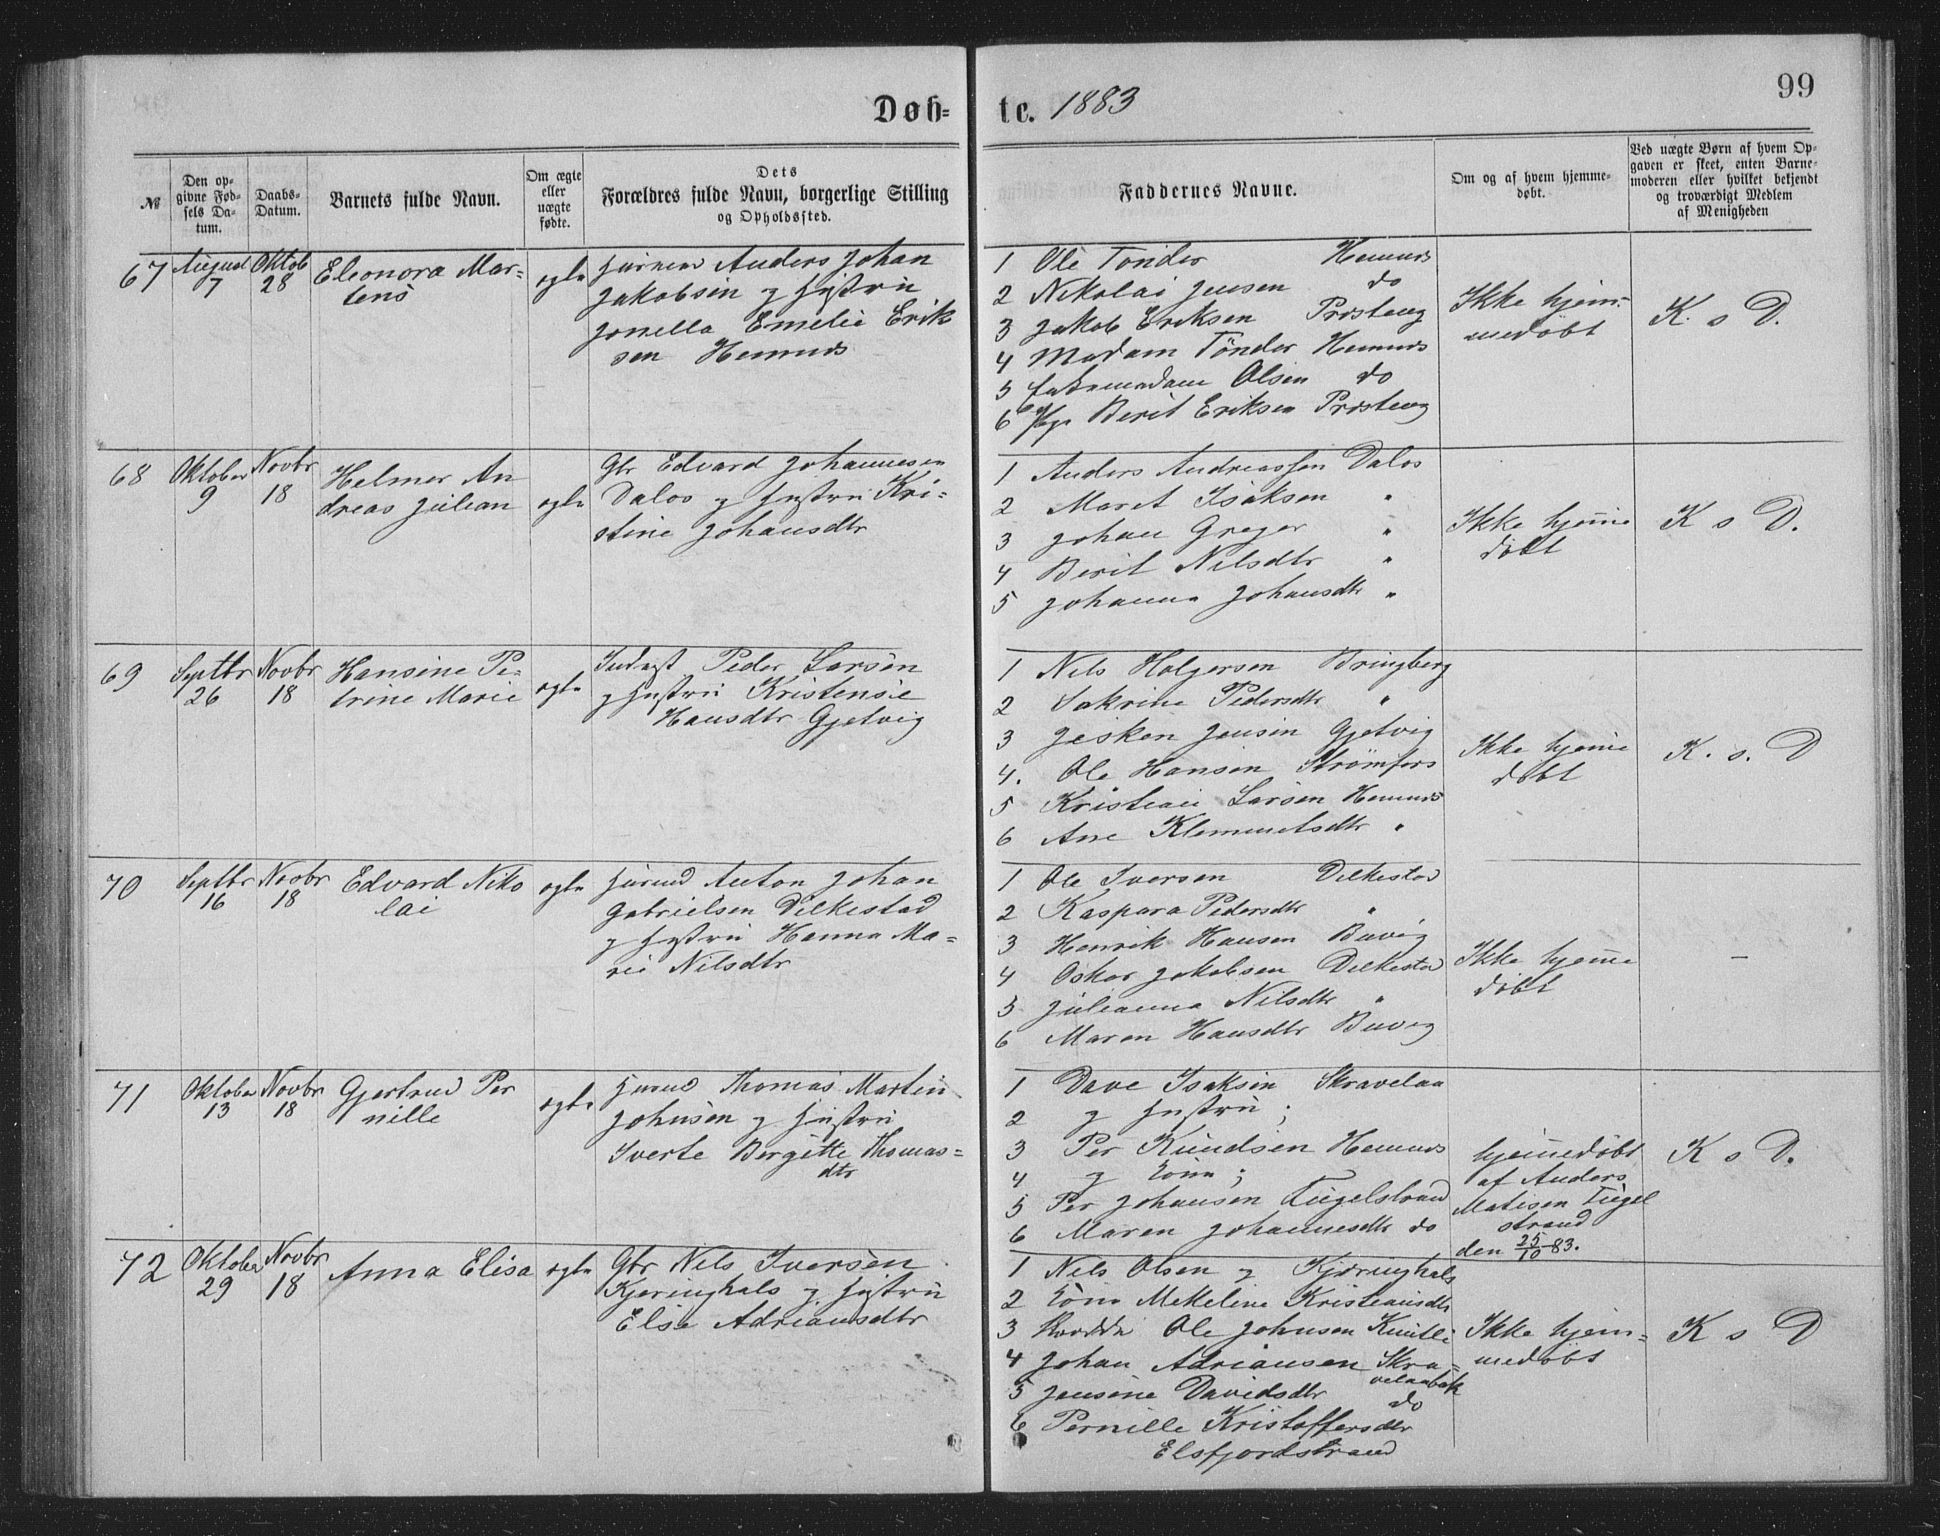 99
Døb-
te. 1883
№
Den op-
givne Fød-
sels Da-
tum.
Daabs-
Datum.
Barnets fulde Navn.
Om ægte
eller
uægte
fødte.
Dets
Forældres fulde Navn, borgerlige Stilling
og Opholdssted.
Faddernes Navne.
Om og af hvem hjemme-
døbt.
Ved uægte Børn af hvem Op-
gaven er skeet, enten Barne-
moderen eller hvilket bekjendt
og troværdigt Medlem
af Menigheden
67
August
7
Oktob
28
Eleonora Mar-
tens
ægte
Anders Johan
Jakobsen og Hustru
Jonella Emelie Erik
sen Hemnes
1 Ole Tønder Hemnes
2 Nikolai Jensen do
3 Jakob Eriksen Presteng
4 Madam Tønder Hemnes
5 Olsen do
6 Pge Berit Eriksen Presteng
Ikke hjem-
medøbt
K. s D.
68
Oktober
9
Novbr
18
Helmer An
dreas Julian
ægte
Gbr Edvard Johannesen
Dalos og Hustru Kri-
stine Johansdtr
1 Anders Andreassen Dalos
2 Maret Isaksen "
3 Johan Greger "
4 Berit Nilsdtr "
5 Johanna Johansdtr "
Ikke hjemme
døbt
K s D.
69
Septbr
26
Novbr
18
Hansine Pe-
trine Marie
ægte
Inderst Peder Larsen
og Hustru Kristensie
Hansdtr Gjetvig
1 Nils Holgersen Bringberg
2 Sakrine Pedersdtr "
3 Jesken Jensen Gjetvig
4. Ole Hansen Strømfors
5 Kristian Larsen Hemnes
6 Ane Klemmetsdtr "
Ikke hjemme
døbt
K. s. D
70
Septbr
16
Novbr
18
Edvard Niko
lai
ægte
Husmd Anton Johan
Gabrielsen Dilkestad
og Hustru Hanna Ma-
rie Nilsdtr
1 Ole Iversen Dilkestad
2 Kaspara Pedersdtr "
3 Henrik Hansen Buvig
4 Oskar Jakobsen Dilkestad
5 Julianna Nilsdtr "
6 Maren Hansdtr Buvig
Ikke hjemme
døbt
–
71
Oktober
13
Novbr
18
Gjertrud Per
nille
ægte
Husmd Thomas Martin
Johnsen og Hustru
Iverte Bergitte Thomas-
dtr
1 Dave Isaksen Skravelaa
2 og Hustru ;
3 Per Knudsen Hemnes
4 og Kona ;
5 Per Johansen Fugelstrand
6 Maren Johannesdtr do
hjemmedøbt
af Anders
Matisen Fugel
strand
den 25/10 83.
K s D.
72
Oktober
29
Novbr
18
Anna Elisa
ægte
Gbr Nils Iversen
Kjeringhals og Hustru
Else Adriansdtr
1 Nils Olsen og Kjæringhals
2 Kona Mekeline Kristiansdtr
3 Ole Johnsen Knutli
4 Johan Adriansen Skra-
velaabak
5 Jensine Davidsdtr do
6 Pernille Kristoffersdtr
Elsfjordstrand
Ikke hjem-
medøbt
K s D